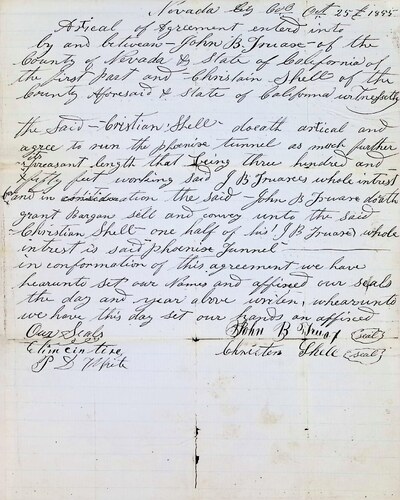 Nevada City Oct 25th 1885
Artical of Agreement enterd into
by and between - John B. Truax - of the
County of Nevada & State of California of
the first part and - Christain Shell of the
County Aforesaid & State of California witnesseth
the Said - Cristian Shell - doeath artical and
agree to run the phoenise tunnel as much further
preasant length that being three hundred and
fifty feet working Said J B Truaxes whole intrest
and in the said - John B Truax doeth
grant Bargan sell and convey unto the said
Christian Shell - one half of his J B Truaxes whole
intrest is said "phoenise Tunnel"
in conformation of this agreement we have
hearunto set our Names and affixed our seals
the day and year above writen, whearunto
we have this day set our hands an affixed
Our Seals
John B Truax (seal)
Christian Shell (seal)